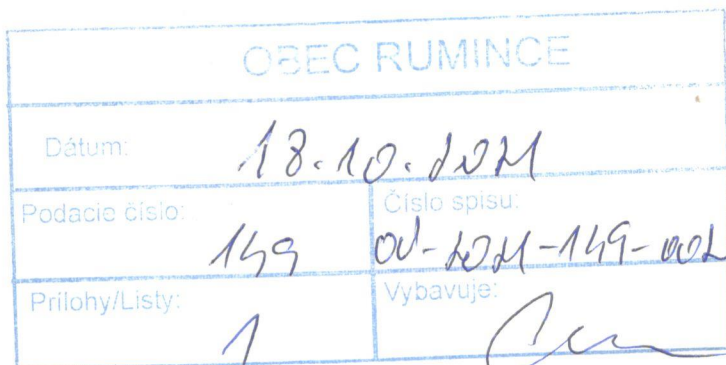 OBEC RUMINCE
Dátum: 18.10.2021
Podacie číslo: 149
Číslo spisu: OÚ-2021-149-002
Prílohy/Listy: 1
Vybavuje: